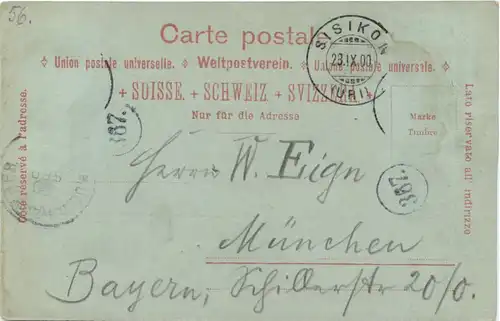 56.
Carte postale
Union postale universelle. Weltpostverein. Unione postale universale.
+ SUISSE. + SCHWEIZ + SVIZZERA +
Nur für die Adresse
SISIKON
29.IX.00
(URI)
Marke
Timbre
Côté réservé à l'adresse.
Lato riservato all indirizzo
387.
387.
Herrn W. Eign
München
Bayern, Schillerstr 20/0.